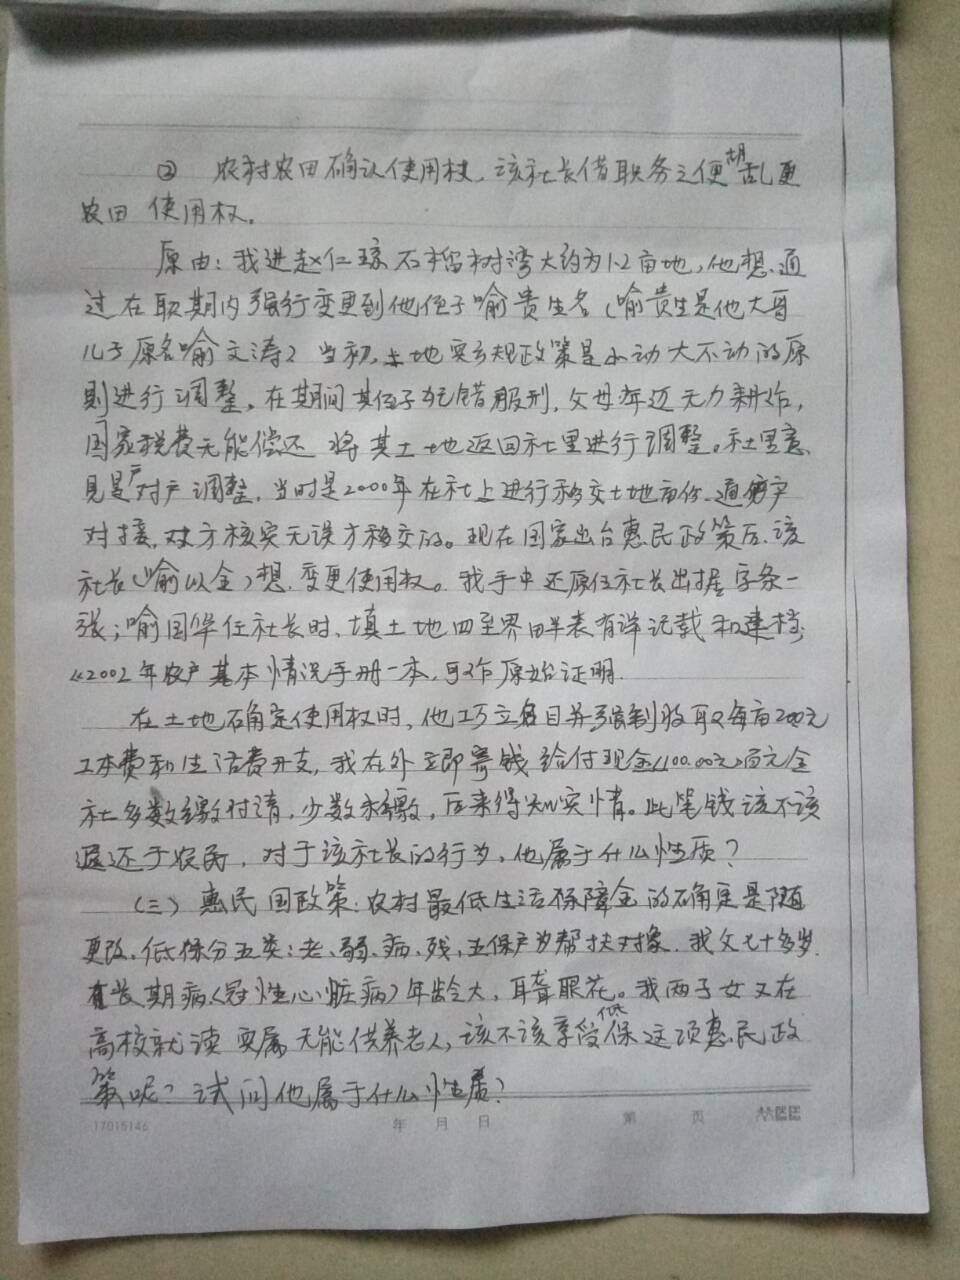 ② 农村农田确认使用权,该社长借职务之便胡乱更
农田 使用权。
原由:我进赵仁琼石榴树湾大约为1.2亩地,他想通
过在职期内强行变更到他侄子喻贵生名(喻贵生是他大哥
儿子原名喻文涛)当初,土地实行规政策是小动大不动的原
则进行调整。在期间其侄子犯错服刑,父母年迈无力耕作,
国家税费无能偿还 将其土地返回社里进行调整。社里意
见是户对户调整,当时是2000年在社上进行移交土地面份.通穷户
对接,双方核实无误方移交的。现在国家出台惠民政策后.该
社长(喻以全)想.变更使用权。我手中还原任社长出据字条一
张;喻国华任社长时、填土地四至界畔表有详记载和建档;
《2002年农户基本情况手册一本,可作原始证明.
在土地确定使用权时,他巧立名目并强制收取每亩200元
工本费和生活费开支,我在外立即寄钱给付现金(100.00元)百元全
社多数缴付清,少数未缴,后来得知实情。此笔钱该不该
退还于农民,对于该社长的行为,他属于什么性质?
(三)惠民国政策:农村最低生活保障金的确定是随
更改.低保分五类:老、弱、病、残,五保户为帮扶对象.我父七十多岁.
有长期病(冠性心脏病)年龄大,耳聋眼花。我两子女又在
高校就读 实属无能供养老人,该不该享受低保这项惠民政
策呢?试问他属于什么性质?
17015146 年 月 日 第 页